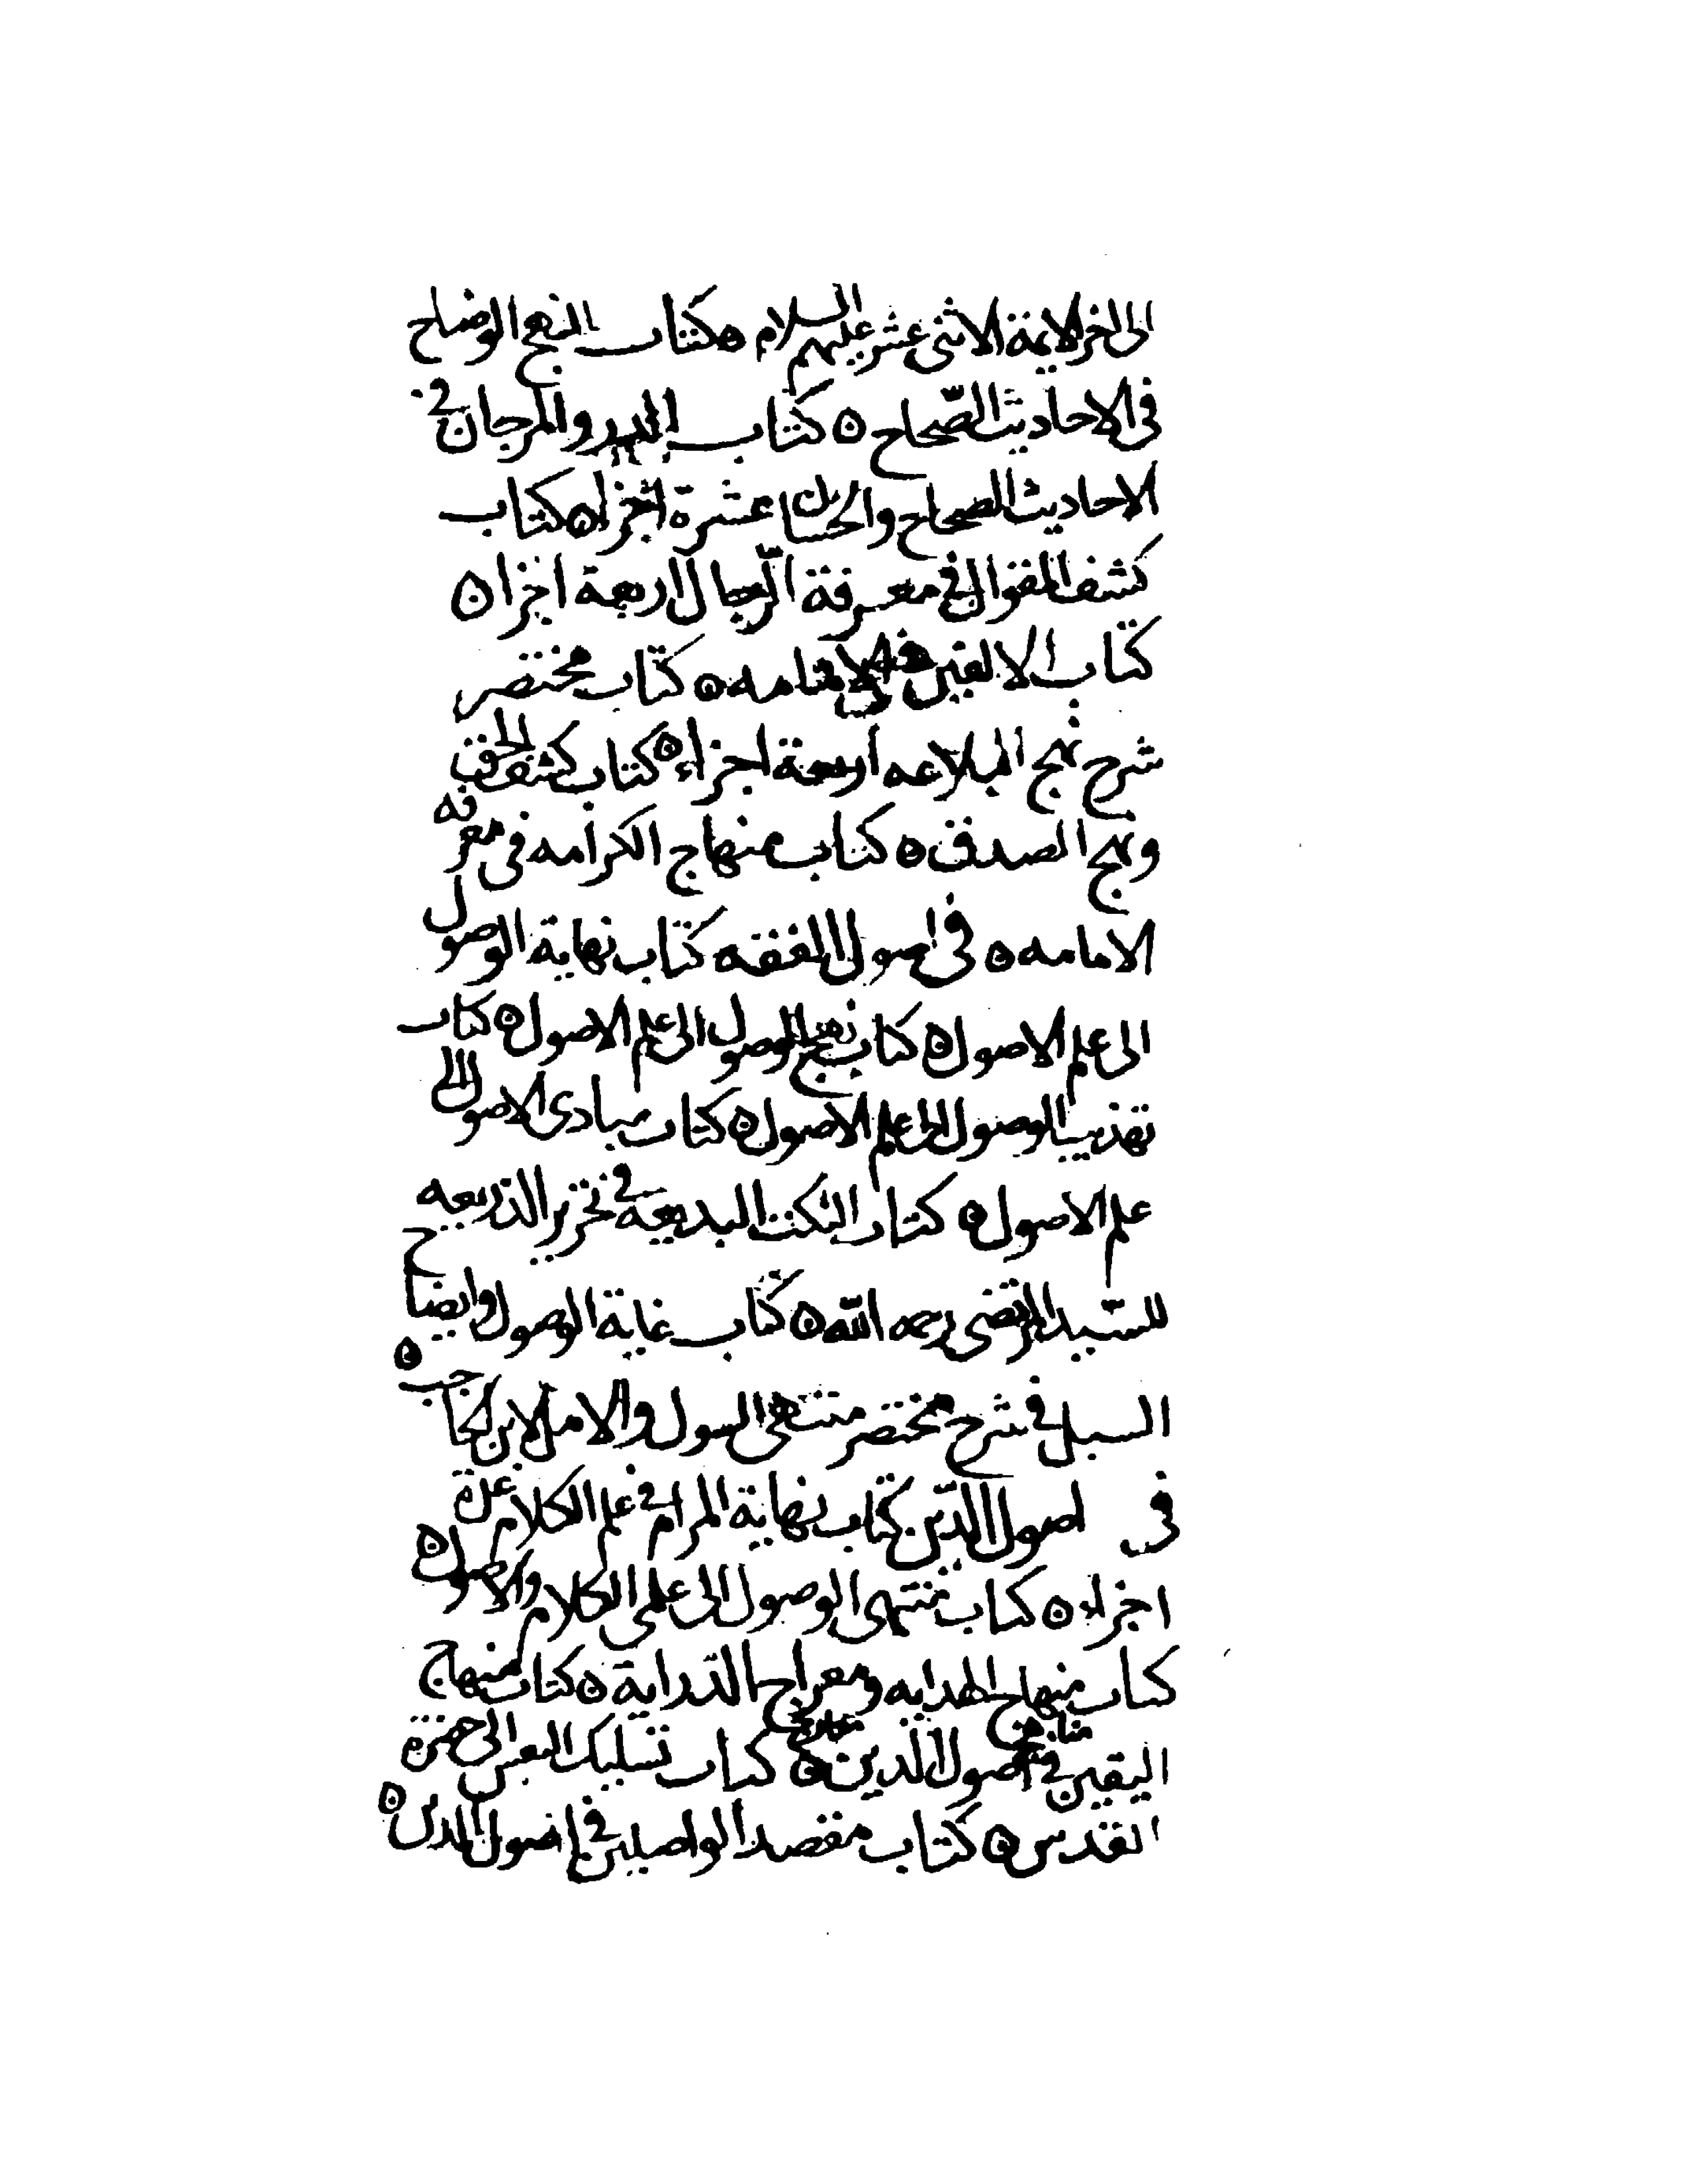 الى اخر الايمة الاثنى عشر عليهم السلام ه كتاب النهج الوضاح
فى الاحاديث الصّحاح ه كتاب الدرر والمرجان في
الاحاديث الصحاح والحسان عشرة اجزاء ه كتاب
كشف المقوال في معرفة الرّجال اربعة اجزا ه
كتاب الالفين في الامامه ه كتاب مختصر
شرح نهج البلاغه اربعة اجزاء ه كتاب كشف الحق
ونهج الصدق ه كتاب منهاج الكرامه فى معرفه
الامامه ه فى اصول الفقه كتاب نهاية الوصول
الى علم الاصول ه كتاب نهج الوصول الى علم الاصول ه كتاب
تهذيب الوصول الى علم الاصول ه كتاب مبادى الاصول الى
علم الاصول ه كتاب النكت البديعه في تحرير الذريعه
للسّيد المرتضى رحمه اللّه ه كتاب غاية الوصول وايضاح
السبل في شرح مختصر منتهى السول والامل لابن الحاجب ه
فى اصول الدّين كتاب نهاية المرام في علم الكلام عدة
اجزاء ه كتاب منتهى الوصول الى علمى الكلام والاصول ه
كتاب منهاج الهدايه ومعراج الدّراية ه كتاب منهاج
اليقين في اصول الدين ه كتاب تسليك النفس الى حضرة
القدس ه كتاب مقصد الواصلين في اصول الدين ه